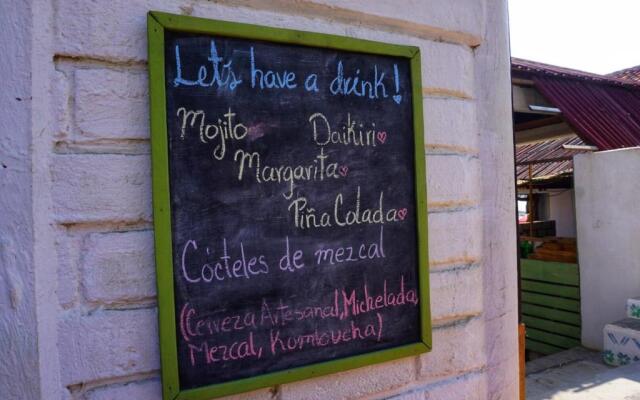 Let's have a drink!
Mojito Daikiri
Margarita
Piña Colada
Cócteles de mezcal
(Cerveza Artesanal, Michelada,
Mezcal, Kombucha)